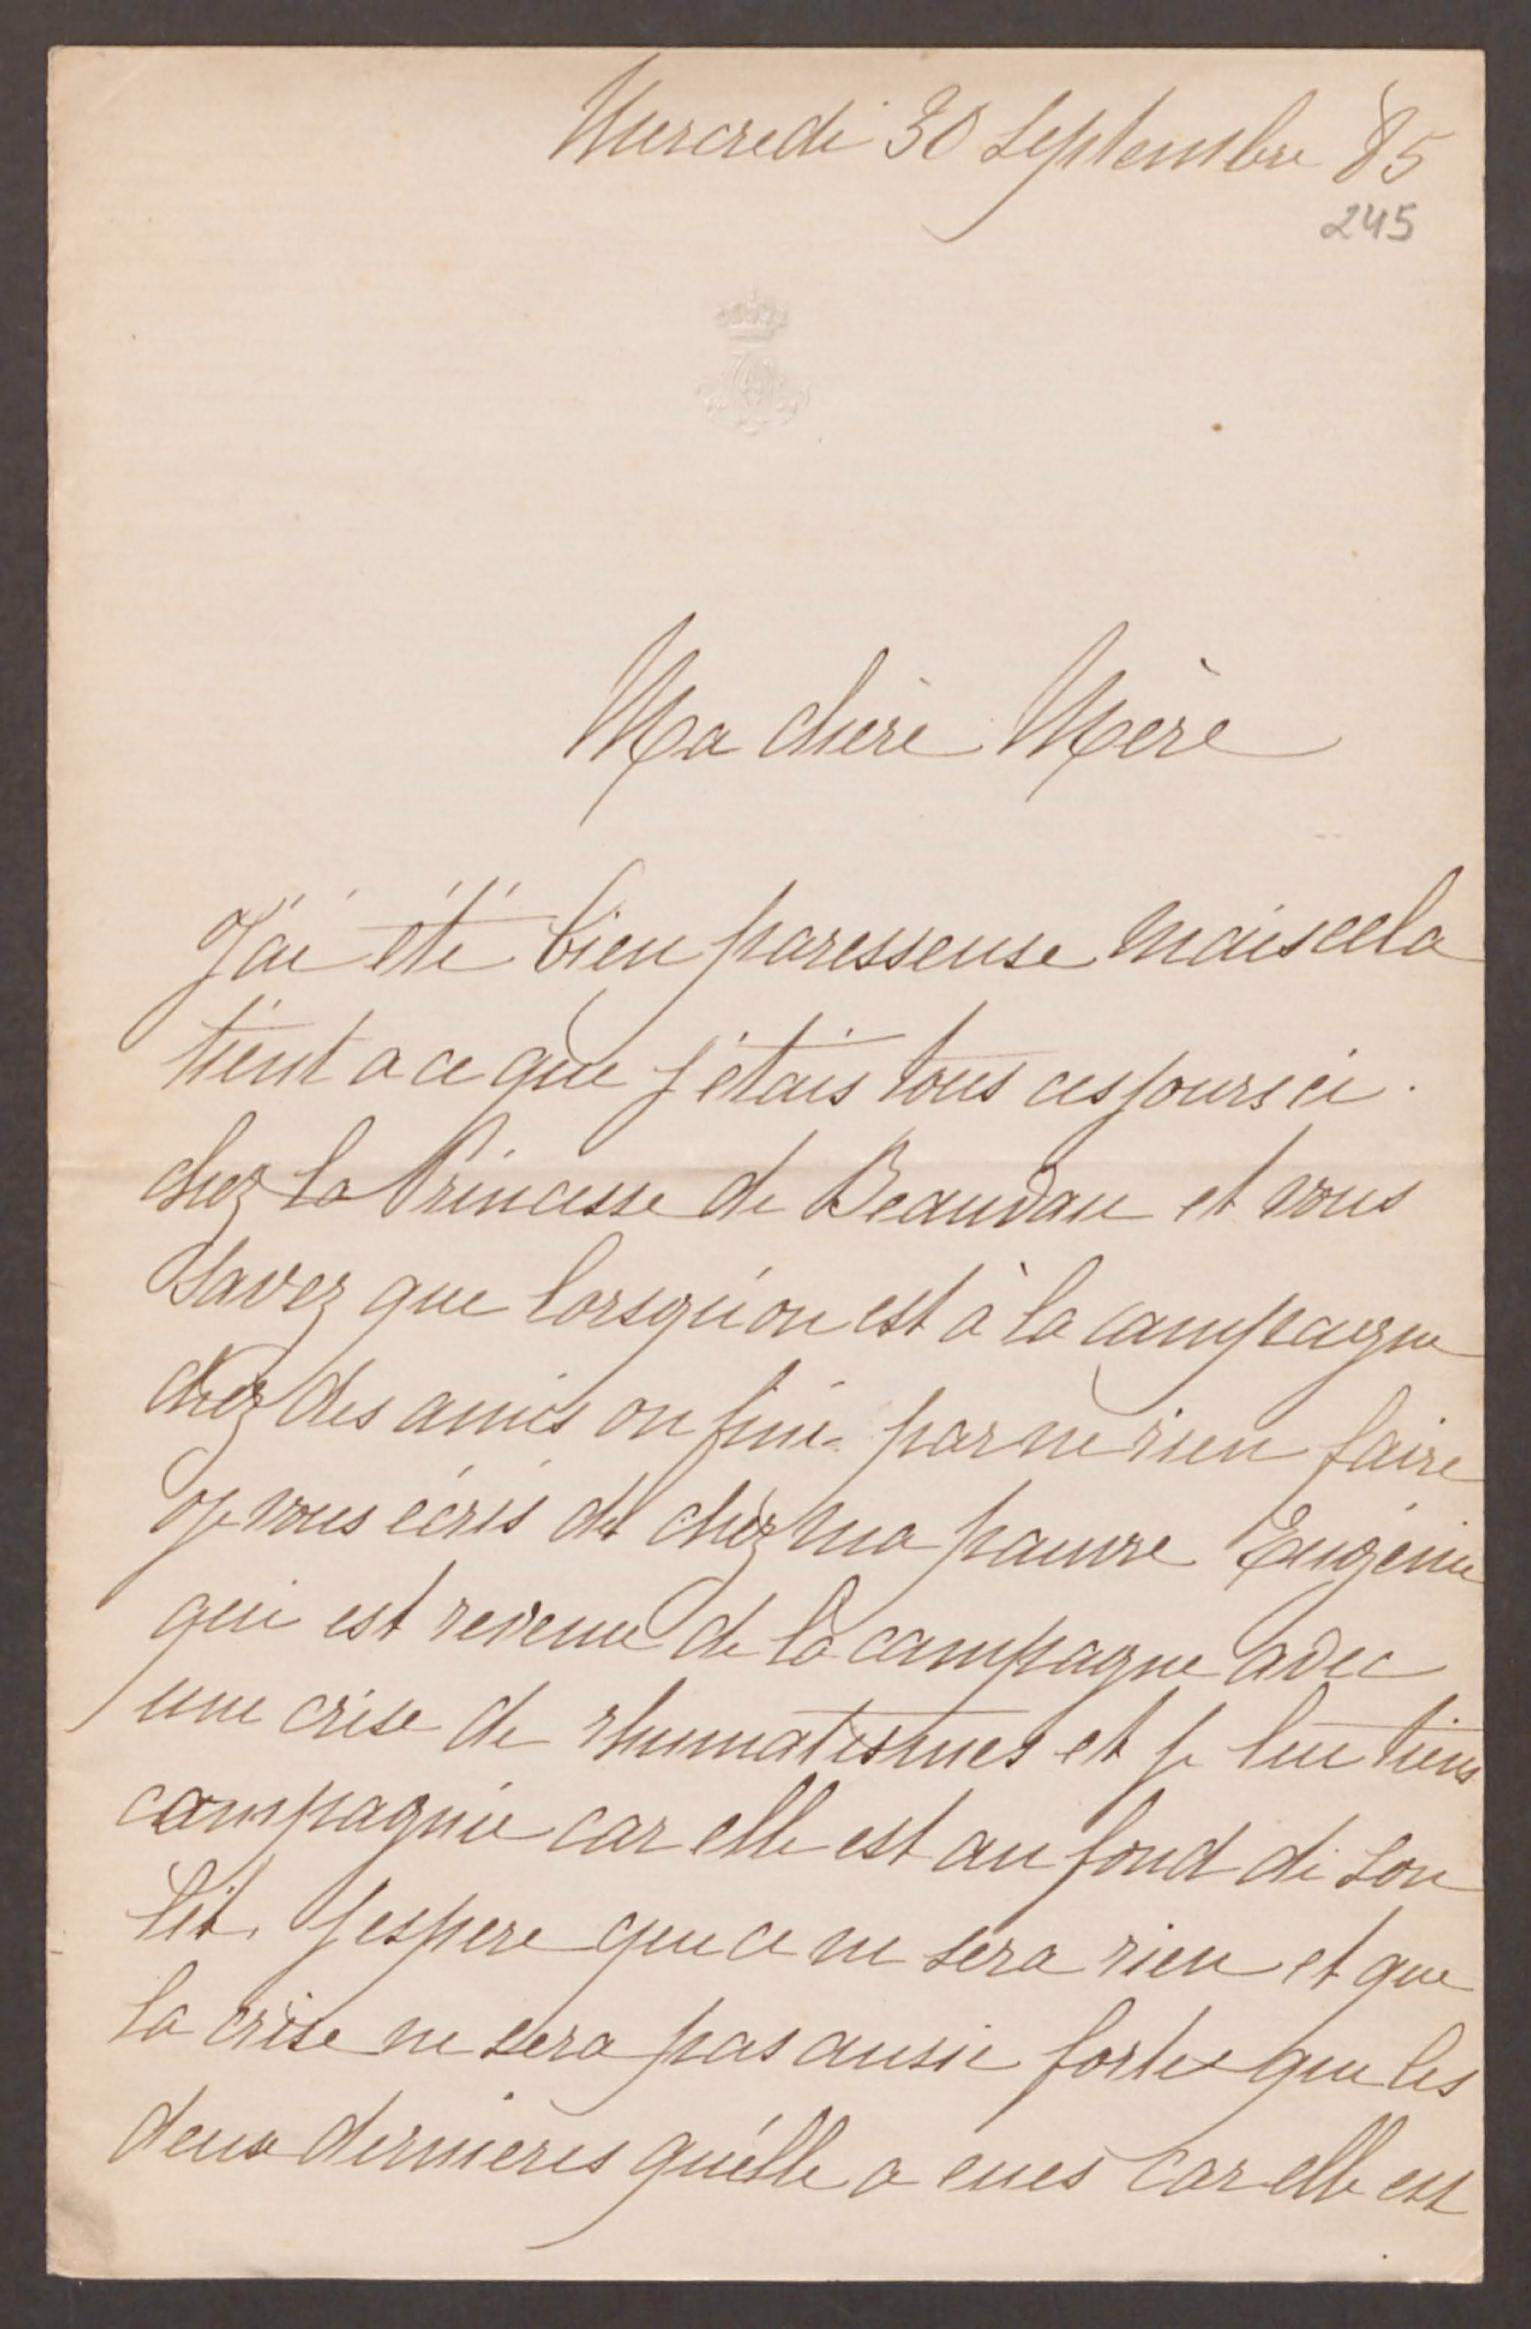 Mercredi 30 Septembre 85
245
Ma chère Mère
J'ai été bien paresseuse mais cela
tient a ce que j'étais tous ces jours ci
chez la Princesse de Beauvau et vous
savez que lorsqu'on est à la campagne
chez des amis on fini par ne rien faire
Je vous écris de chez ma pauvre Eugénie
qui est revenue de la campagne avec
une crise de rhumatismes et je lui tiens
compagnie car elle est au fond de son
lit. J'espere que ce ne sera rien et que
la crise ne sera pas aussi forte que les
deux dernieres qu'elle a eues car elle est